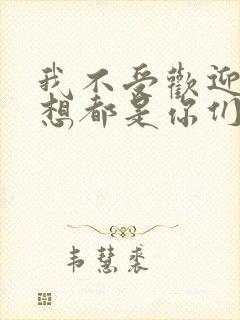 我不受歡迎
想都是你们
韦慧裘